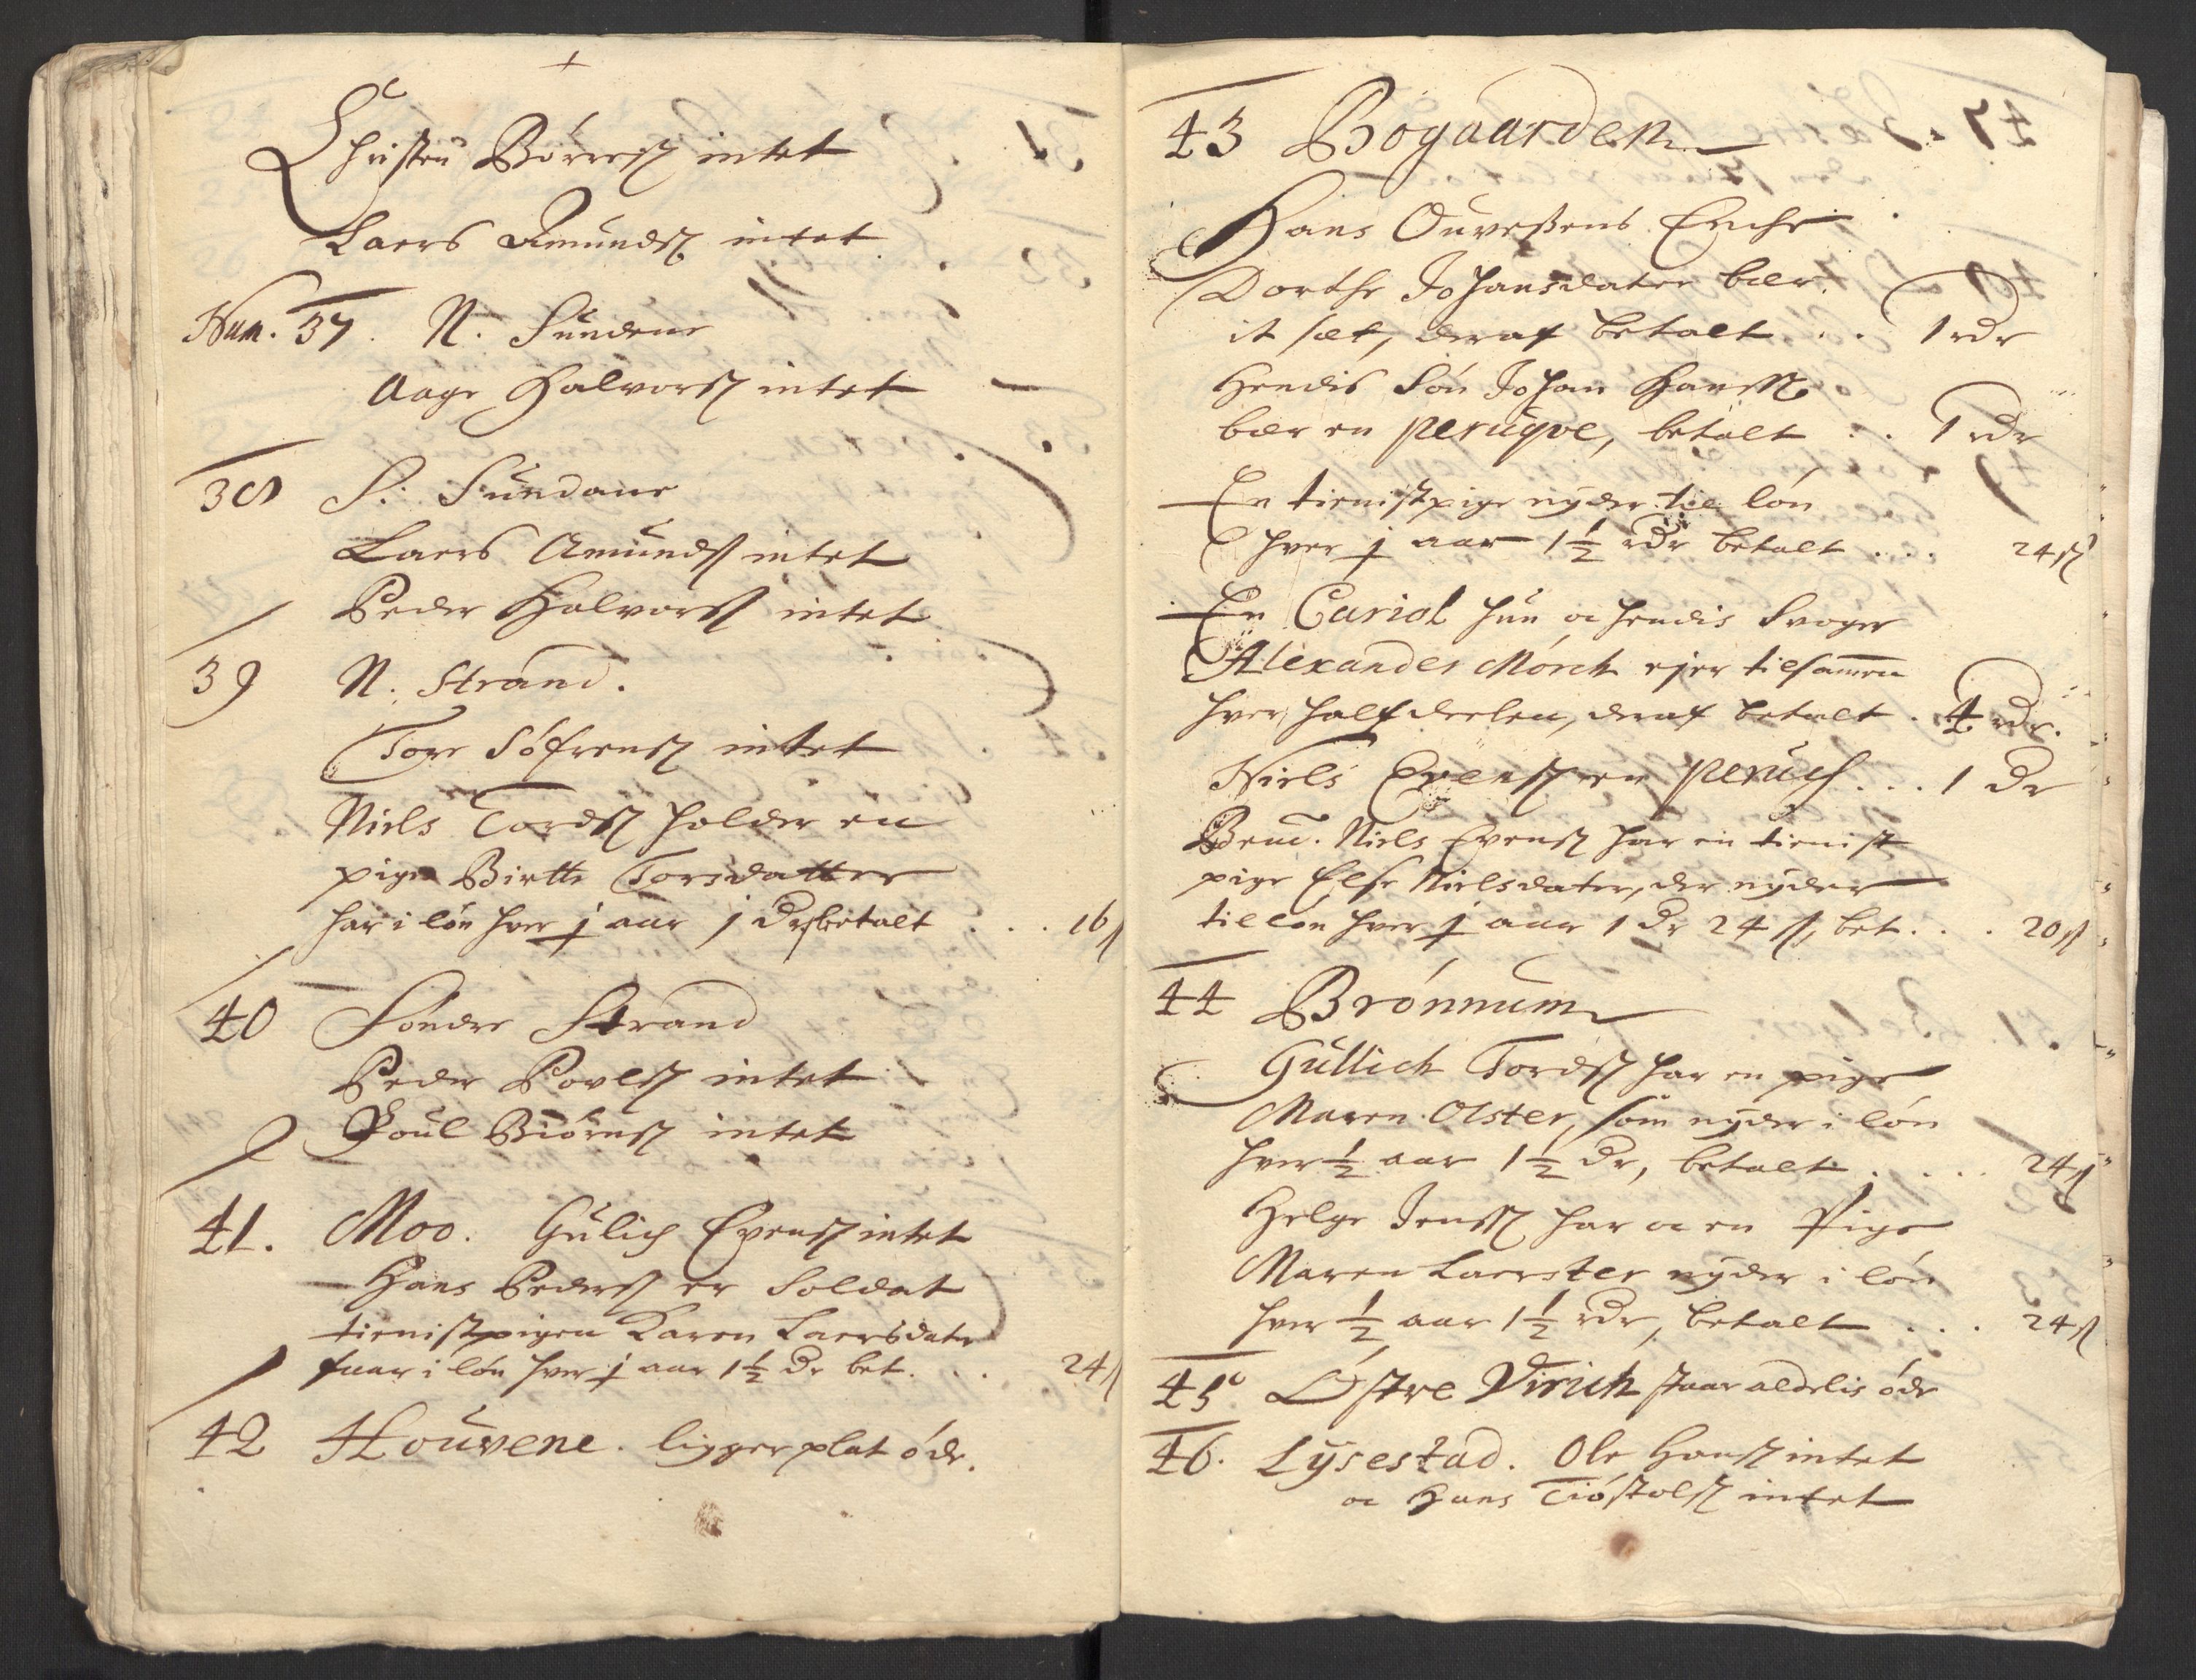 Christen Börress intet
Laers Amundss intet
Num. 37. N. Sundene
Aage Halvorss intet
38 S. Sundane
Laers Amundss intet
Peder Halvorss intet
39 N. Strand.
Tore Söfrenss intet
Niels Tordss holder en
pige Birtte Torsdatter
har i lön hver ½ aar 1 dr betalt . . . 16 ss
40 Söndre Strand
Peder Povelss intet
Poul Biörnss intet
41. Moo. Gulich Evenss intet
Hans Pederss er Soldat
tienistpigen Karen Laersdatr
faar i lön hver ½ aar 1½ dr bet. . . 24 ss
42 Houvene. ligger plat öde.
43 Bogaarden
Hans Ouvessens Enche
Dorthe Johansdater bær
it sæt, deraf betalt . . . 1 rdr
Hendis Sön Johan Hanss
bær en peruqve, betalt . . 1 rdr
En tienistpige nyder til lön
hver ½ aar 1½ rdr betalt . . . 24 ss
En Cariol hun oc hendis Svoger
Alexander Mörch ejer tilsammen
hver halfdeelen, deraf betalt . 4 rdr.
Niels Evenss en peruch . . . 1 dr
Bemt. Niels Evenss har en tienist
pige Else Nielsdater, der nyder
til lön hver ½ aar 1 dr 24 ss, bet. . . 20 ss
44 Brönnum
Gullich Tordss har en pige
Maren Olster, som nyder i lön
hver ½ aar 1½ dr, betalt . . . . 24 ss
Helge Jenss har oc en Pige
Maren Laerster nyder i lön
hver ½ aar 1½ rdr, betalt . . . 24 ss
45 Östre Virich staar aldelis öde
46. Lysestad. Ole Hanss intet
oc Hans Tióstolss intet